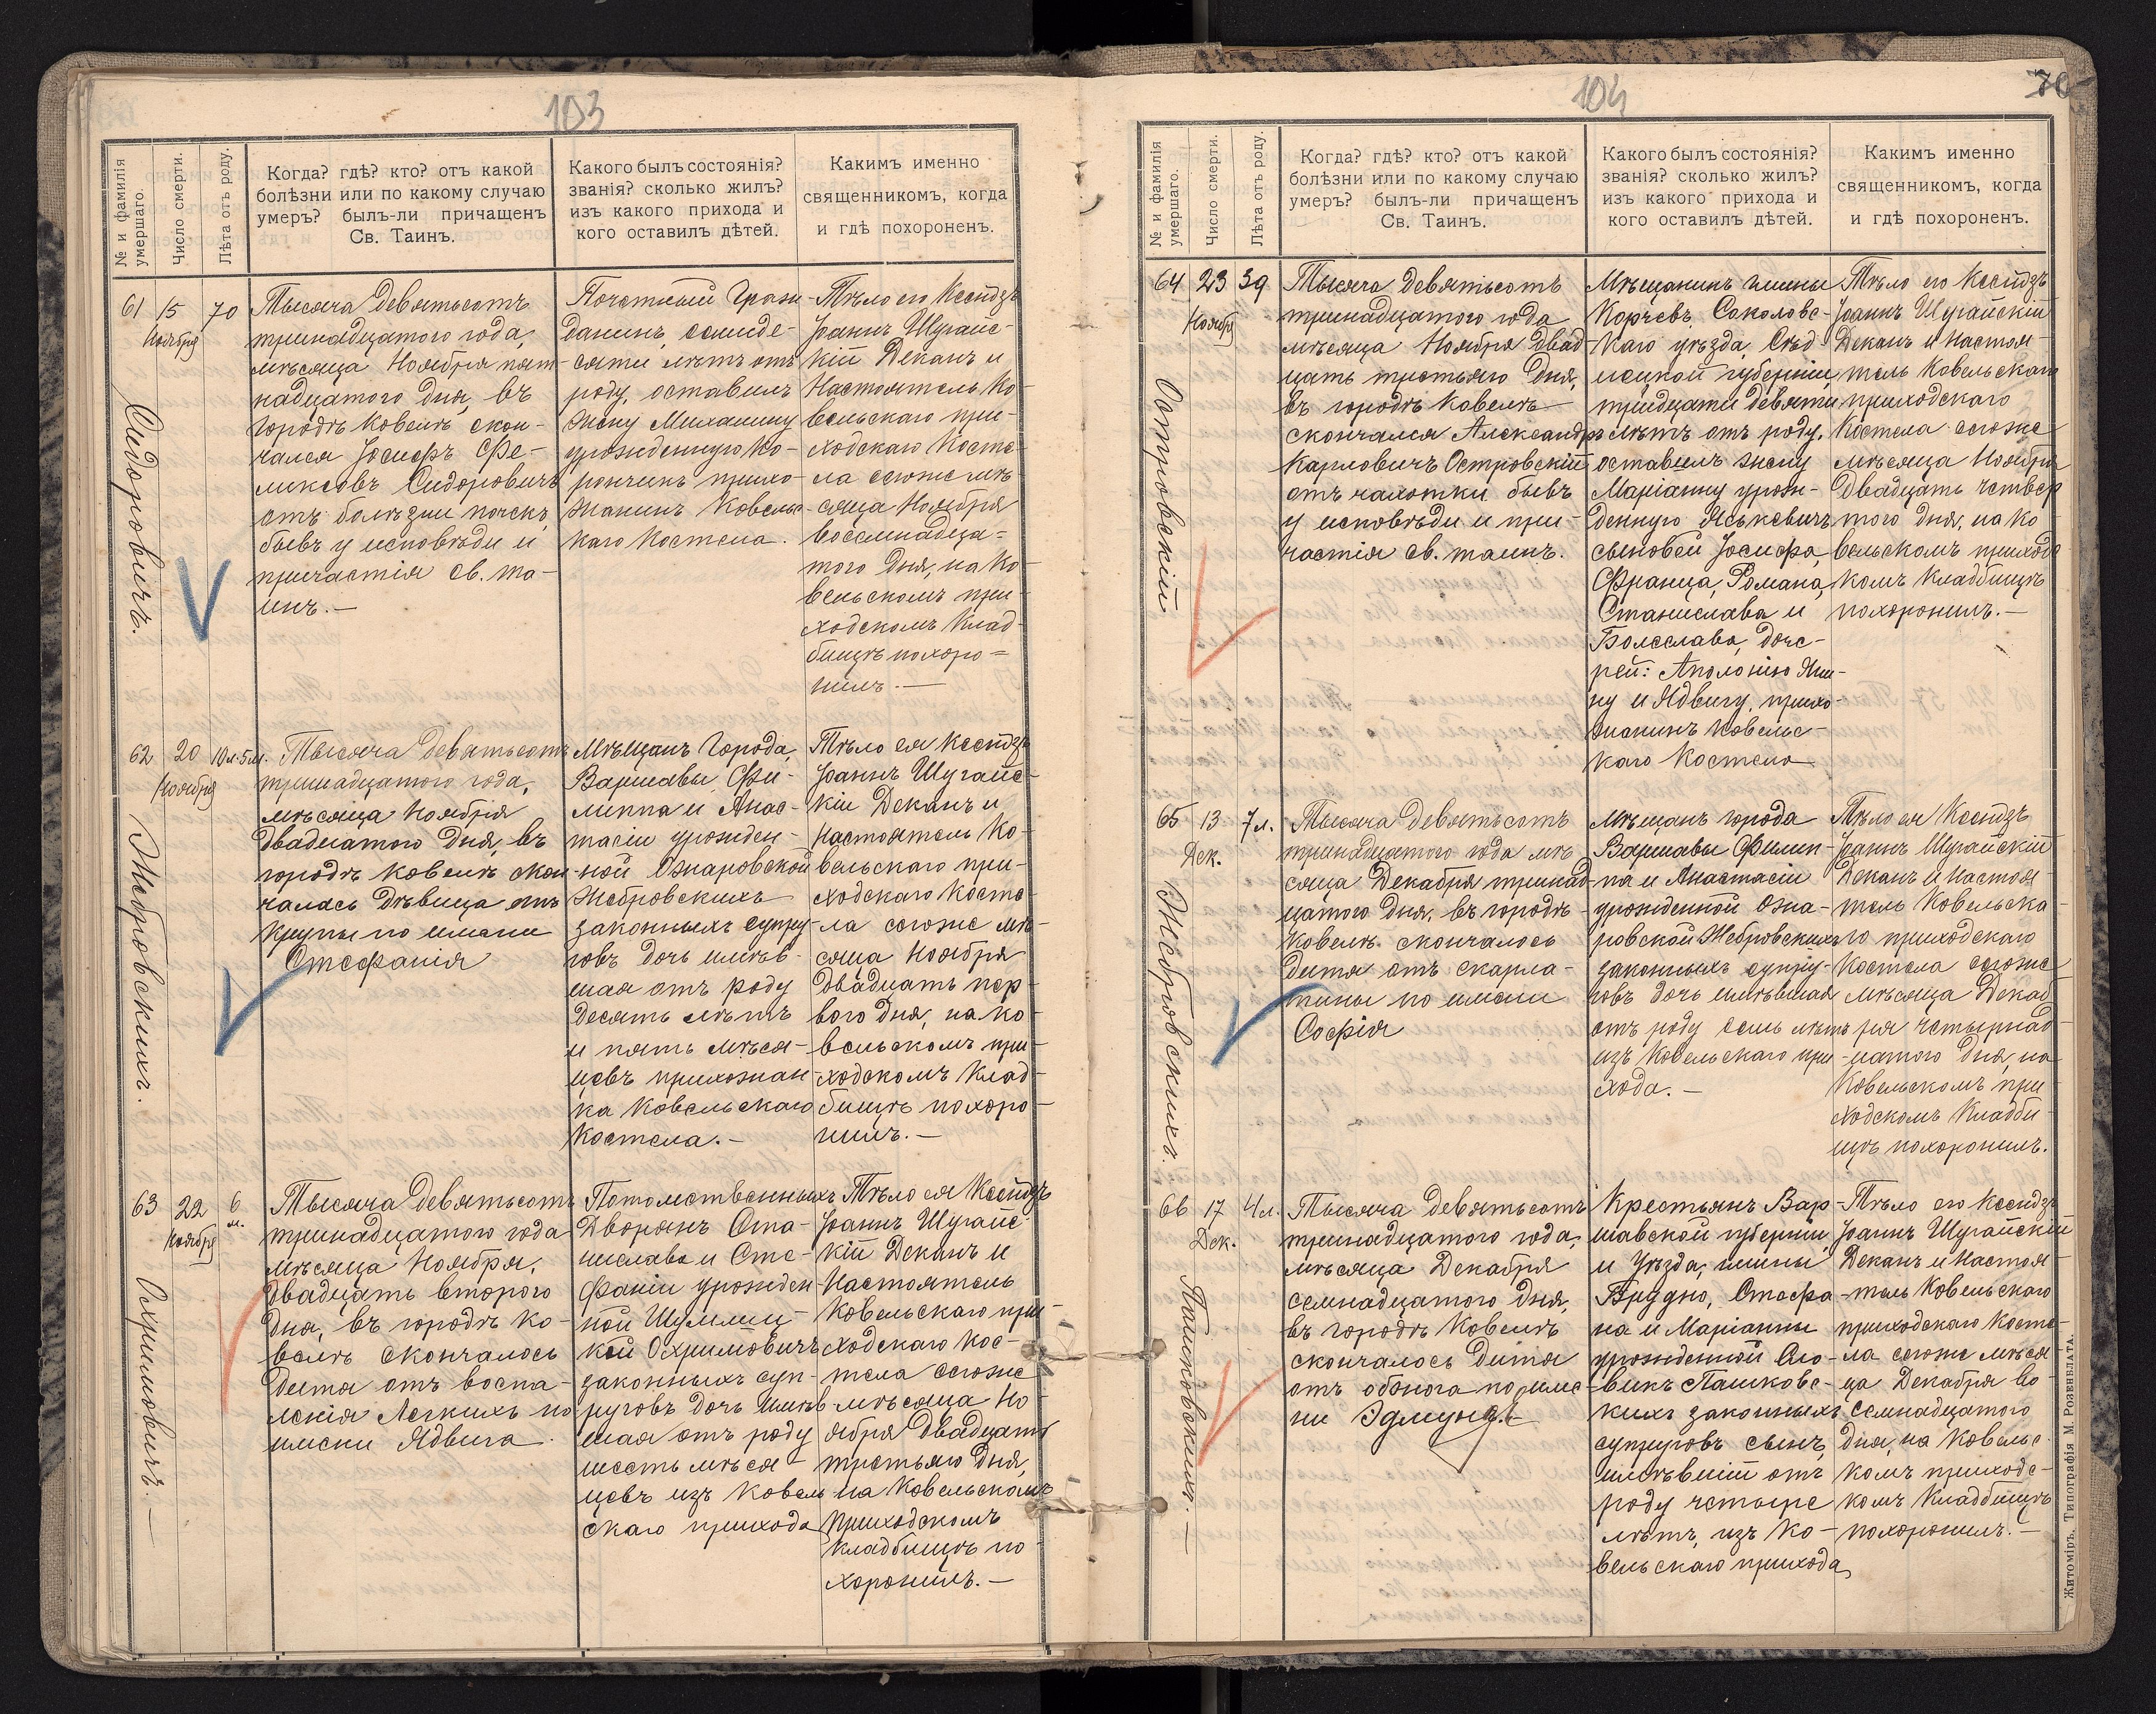 103
№ и фамилія
умершаго.
Число смерти.
Лѣта отъ роду.
Когда? гдѣ? кто? отъ какой
болѣзни или по какому случаю
умеръ? былъ-ли причащенъ
Св. Таинъ.
Какого былъ состоянія?
званія? сколько жилъ?
изъ какого прихода и
кого оставилъ дѣтей.
Какимъ именно
священникомъ, когда
и гдѣ похороненъ.
61
15
Ноября
70
Сидоровичъ.
Тысяча девятьсотъ
тринадцатого года,
мѣсяца Ноября пят-
надцатого дня, въ
городѣ Ковелѣ скон-
чался Іосифъ Фе-
ликсовъ Сидоровичъ
отъ болѣзни почекъ
бывъ у исповѣди и
причастія св. та-
инъ.—
Почетный Граж-
данинъ, семиде-
сяти лѣтъ отъ
роду, оставилъ
жену Михалину
урожденную Ко-
рончикъ прихо-
жанинъ Ковельс-
каго Костела.
Тѣло его Ксендзъ
Іоаннъ Шугайс-
кій Деканъ и
Настоятель Ко-
вельскаго при-
ходскаго Косте-
ла сегоже мѣ
сяца Ноября
восемнадца-
того дня, на Ко-
вельскомъ при-
ходскомъ Клад-
бищѣ похоро-
нилъ.—
62
20
Ноября
10 л. 5 м.
Жебровскихъ.
Тысяча девятьсотъ
тринадцатого года,
мѣсяца Ноября
двадцатого дня, въ
городѣ Ковелѣ скон-
чалась дѣвица отъ
крупы по имени
Стефанія
Мѣщанъ Города,
Варшавы, Фи-
липпа и Анас-
тасіи урожден-
ной Ожаровской
Жебровскихъ
законныхъ супру-
говъ дочь имѣв-
шая отъ роду
десять лѣтъ
и пять мѣся-
цевъ прихожан-
ка Ковельскаго
Костела.—
Тѣло ея Ксендзъ
Іоаннъ Шугайс-
кій Деканъ и
Настоятель Ко-
вельскаго при-
ходскаго Косте-
ла сегоже мѣ-
сяца Ноября
двадцать пер-
вого дня, на Ко-
вельскомъ при-
ходскомъ Клад-
бищѣ похоро-
нилъ.—
63
22
Ноября
6
м.
Охримовичъ.—
Тысяча девятьсотъ
тринадцатого года
мѣсяца Ноября,
двадцать второго
дня, въ городѣ Ко-
велѣ скончалось
дитя отъ воспа-
ленія Легкихъ по
имени Ядвига.
Потомственныхъ
Дворянъ Ста-
нислава и Сте-
фаніи урожден-
ной Шумлиц-
кой Охримовичъ
законныхъ суп-
руговъ дочь имѣв
шая отъ роду
шесть мѣся-
цевъ изъ Ковель
скаго прихода
Тѣло ея Ксендзъ
Іоаннъ Шугайс-
кій Деканъ и
Настоятель
Ковельскаго при-
ходскаго Кос-
тела сегоже
мѣсяца Но-
ября двадцать
третьяго дня,
на Ковельскомъ
приходскомъ
кладбищѣ по-
хоронилъ.—
104
70
№ и фамилія
умершаго.
Число смерти.
Лѣта отъ роду.
Когда? гдѣ? кто? отъ какой
болѣзни или по какому случаю
умеръ? былъ-ли причащенъ
Св. Таинъ.
Какого былъ состоянія?
званія? сколько жилъ?
изъ какого прихода и
кого оставилъ дѣтей.
Какимъ именно
священникомъ, когда
и гдѣ похороненъ.
64
23
Ноября
39
Островскій
Тысяча девятьсотъ
тринадцатого года
мѣсяца Ноября двад-
цать третьяго дня,
въ городѣ Ковелѣ
скончался Александръ
Карловичъ Островскій
отъ чахотки бывъ
у исповѣди и при-
частія св. таинъ.
Мѣщанинъ гмины
Корчевъ, Соколовс-
каго уѣзда, Сѣд-
лецкой губерніи,
тридцати девяти
лѣтъ отъ роду,
оставилъ жену
Маріанну урож-
денную Яськевичъ
сыновей Іосифа,
Франца, Романа,
Станислава и
Болеслава, доче-
рей: Аполонію Яни-
ну и Ядвигу, прихо-
жанинъ Ковельс-
каго Костела
Тѣло его Ксендзъ
Іоаннъ Шугайскій
Деканъ и Настоя-
тель Ковельскаго
приходскаго
Костела сегоже
мѣсяца Ноября
двадцать четвер
того дня, на Ко-
вельскомъ приходс
комъ Кладбищѣ
похоронилъ.—
65
13
Дек.
7 л.
Жебровскихъ.
Тысяча девятьсотъ
тринадцатого года мѣ
сяца Декабря тринад-
цатого дня, въ городѣ
Ковелѣ скончалось
дитя отъ скарла-
тины по имени
Софія
Мѣщанъ города
Варшавы Филип-
па и Анастасіи
урожденной Ожа-
ровской Жебровскихъ
законныхъ супру-
говъ дочь имѣвшая
отъ роду семь лѣтъ
изъ Ковельскаго при-
хода.—
Тѣло ея Ксендзъ
Іоаннъ Шугайскій
Деканъ и Настоя-
тель Ковельска-
го приходскаго
Костела сегоже
мѣсяца Декаб
ря четырнад-
цатого дня, на
Ковельскомъ при
ходскомъ Кладби-
щѣ похоронилъ.
66
17
Дек.
4 л.
Пашковскихъ.—
Тысяча девятьсотъ
тринадцатого года,
мѣсяца Декабря
семнадцатого дня,
въ городѣ Ковелѣ
скончалось дитя
отъ по име-
ни Эдмундъ.—
Крестьянъ Вар-
шавской губерніи
и Уѣзда, гмины
Брудно, Стефа-
на и Маріанны
урожденной Сло-
викъ Пашковс-
кихъ законныхъ
супруговъ сынъ,
имѣвшій отъ
роду четыре
лѣтъ, изъ Ко-
вельскаго прихода
Тѣло его Ксендзъ
Іоаннъ Шугайскій
Деканъ и Настоя-
тель Ковельскаго
приходскаго Косте-
ла сегоже мѣся-
ца Декабря во-
семнадцатого
дня, на Ковельс-
комъ приходс-
комъ Кладбищѣ
похоронилъ.—
Житоміръ. Типографія М. Розенблата.